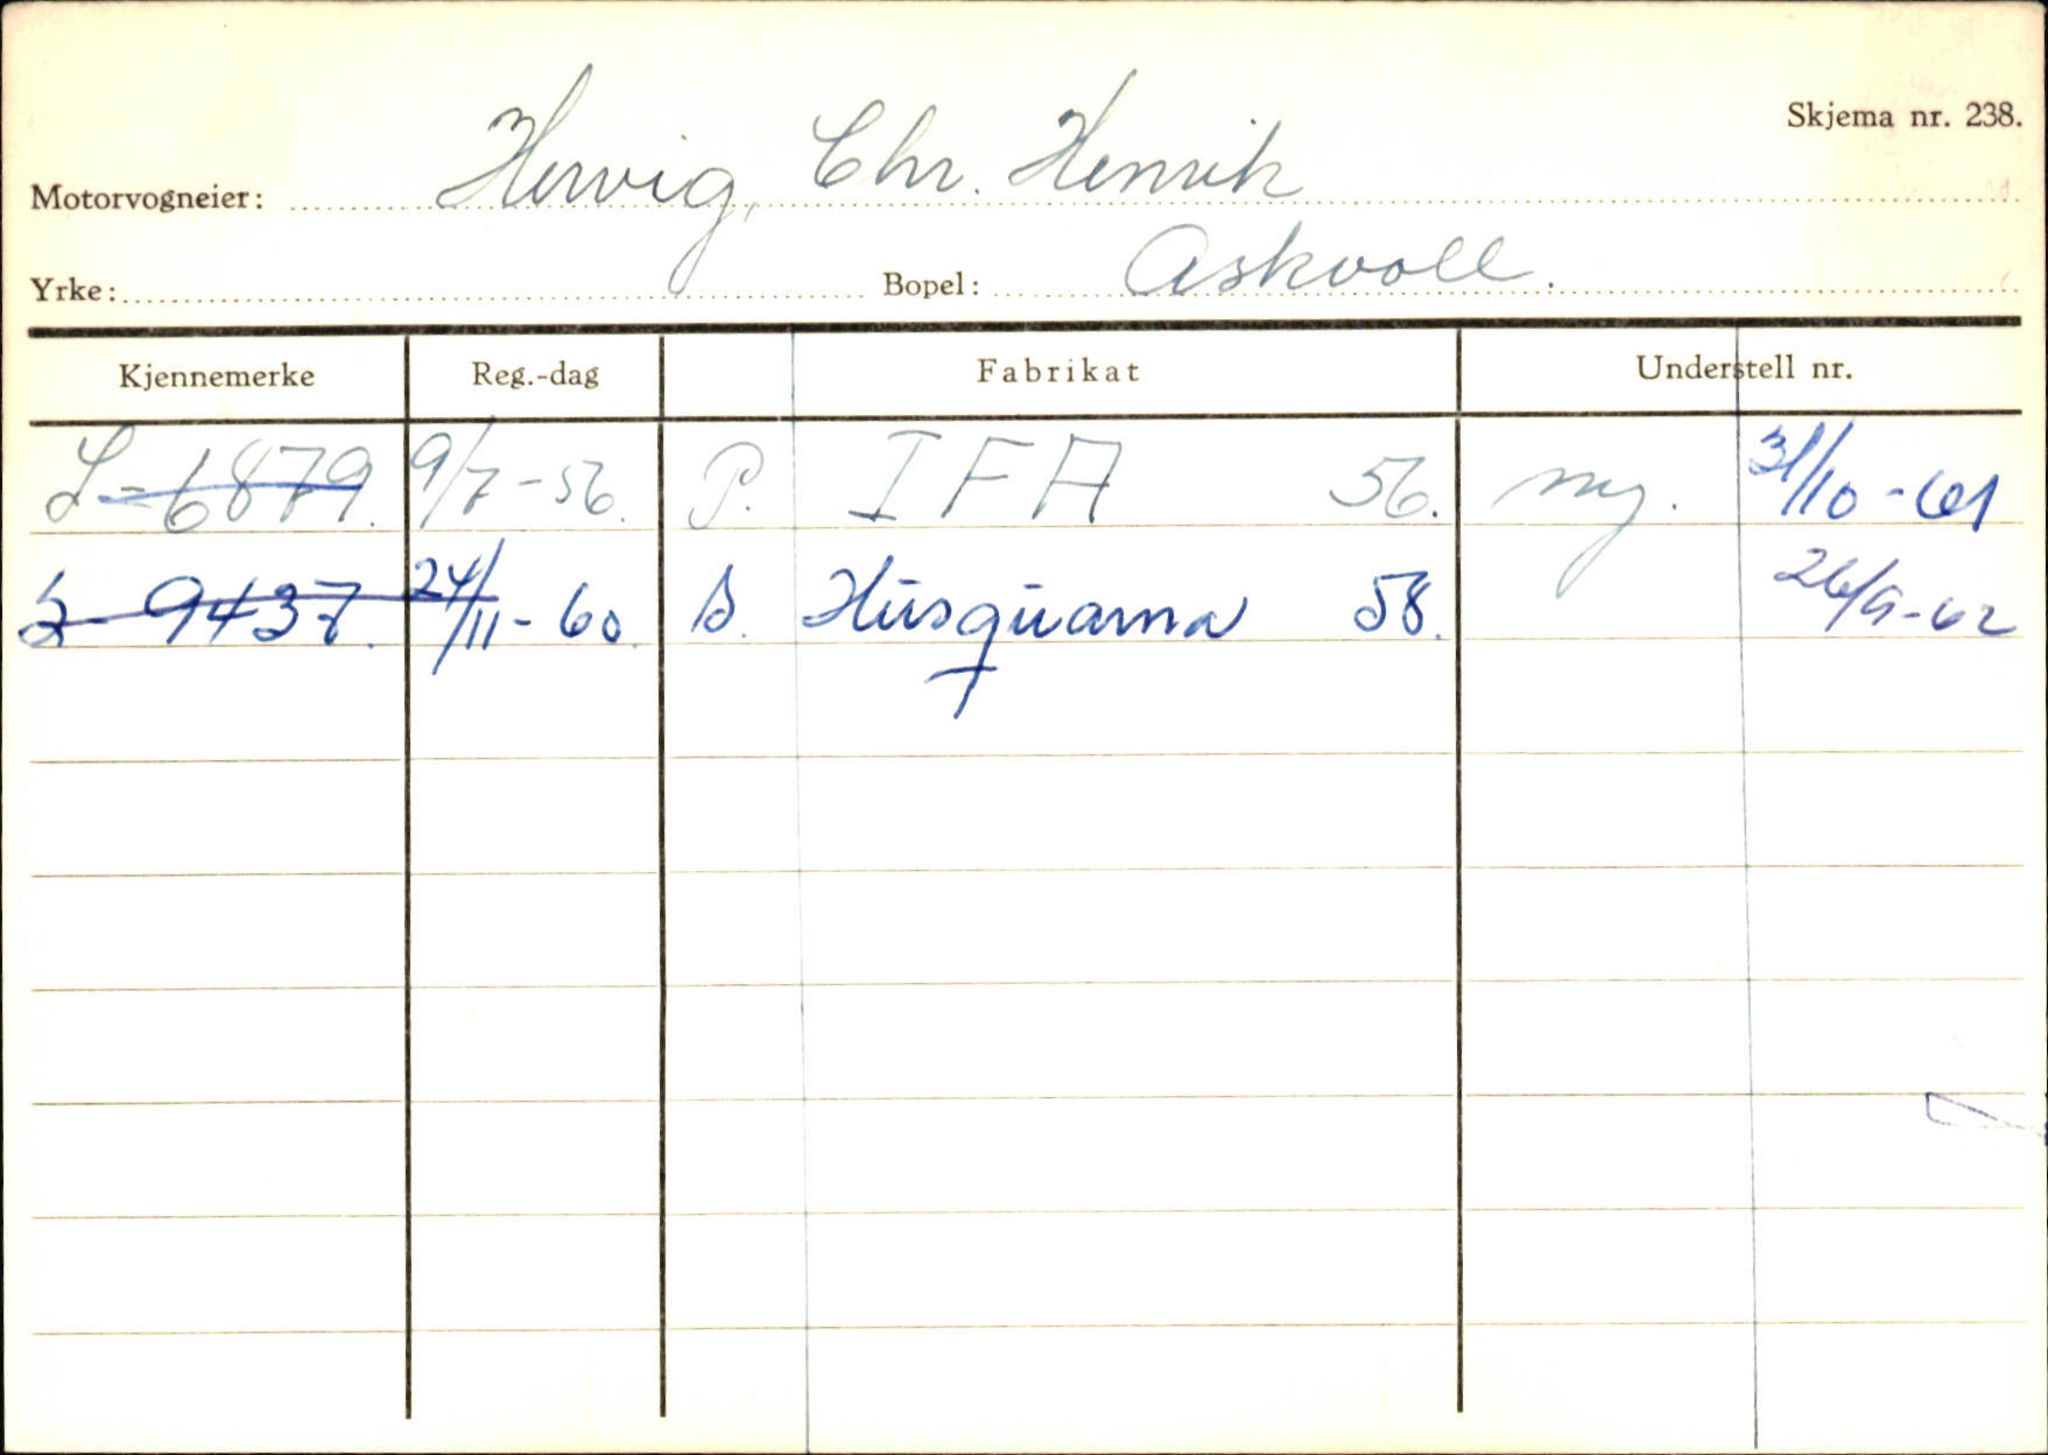 Skjema nr. 238.
Motorvogneier: Hervig, Chr. Henrik
Yrke: Bopel: Askvoll.
Kjennemerke Reg.-dag Fabrikat Understell nr.
S-6879. 9/7-56. P. IFA 56. ny. 31/10-61
S-9437. 24/11-60. S. Husquarna 58. 26/9-62